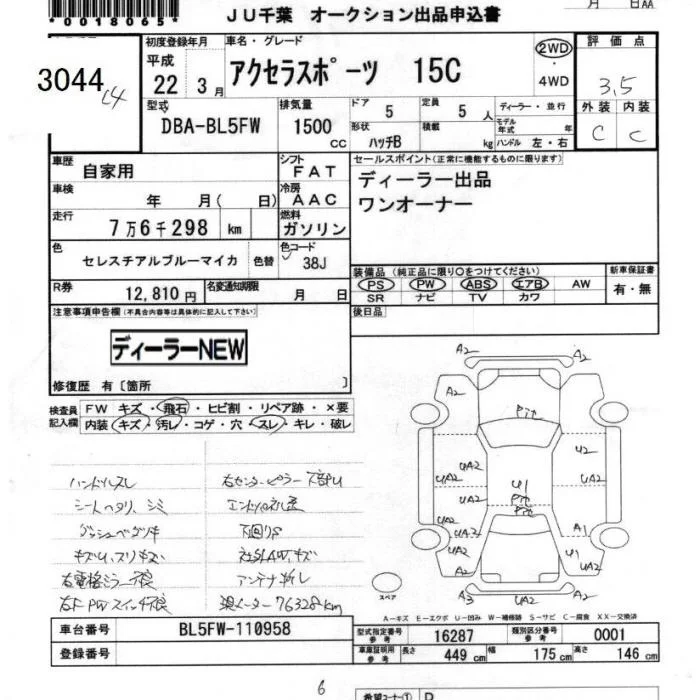 *0018065*
JU千葉 オークション出品申込書
月 日AA
3044
初度登録年月
平成
22 3月
車名・グレード
アクセラスポーツ 15C
2WD
4WD
評価点
3.5
外装 内装
C C
型式
DBA-BL5FW
排気量
1500 cc
ドア 5
定員 5人
ディーラー・並行
形状
ハッチB
積載 kg
モデル年式 年
ハンドル 左・右
車歴
自家用
シフト
FAT
セールスポイント(正常に機能するものに限ります)
ディーラー出品
ワンオーナー
車検
年 月( 日)
冷房
AAC
走行
7万6千298 km
燃料
ガソリン
色
セレスチアルブルーマイカ
色替
色コード
38J
装備品(純正品に限り○をつけてください)
PS PW ABS エアB AW
SR ナビ TV カワ
新車保証書
有・無
R券
12,810円
名変通知期限
月 日
後日品
注意事項申告欄(不具合内容等は具体的に記入して下さい)
ディーラーNEW
修復歴 有〔箇所 〕
検査員記入欄
FW キズ・飛石・ヒビ割・リペア跡・×要
内装 キズ・汚レ・コゲ・穴・スレ・キレ・破レ
ハンドルスレ
右センターピラー下部U
シートヘタリ、シミ
ダッシュベタツキ
下回りS
社外AW、キズ
右電格ミラー不良
アンテナ折レ
右F PWスイッチ不良
A2 A2
A2 A2
Pit
UA2 U2
UA2 U1 UA2
UA2 Pit
Pit
UA2 A1
UA2 U1 UA2
A3 UA2 A2
スペア
A－キズ E－エクボ U－凹み W－補修跡 S－サビ C－腐食 XX－交換済
車台番号
BL5FW-110958
登録番号
型式指定番号 参考
16287
類別区分番号 参考
0001
車庫証明用 参考
長さ 449cm
幅 175cm
高さ 146cm
6
希望コーナー① D